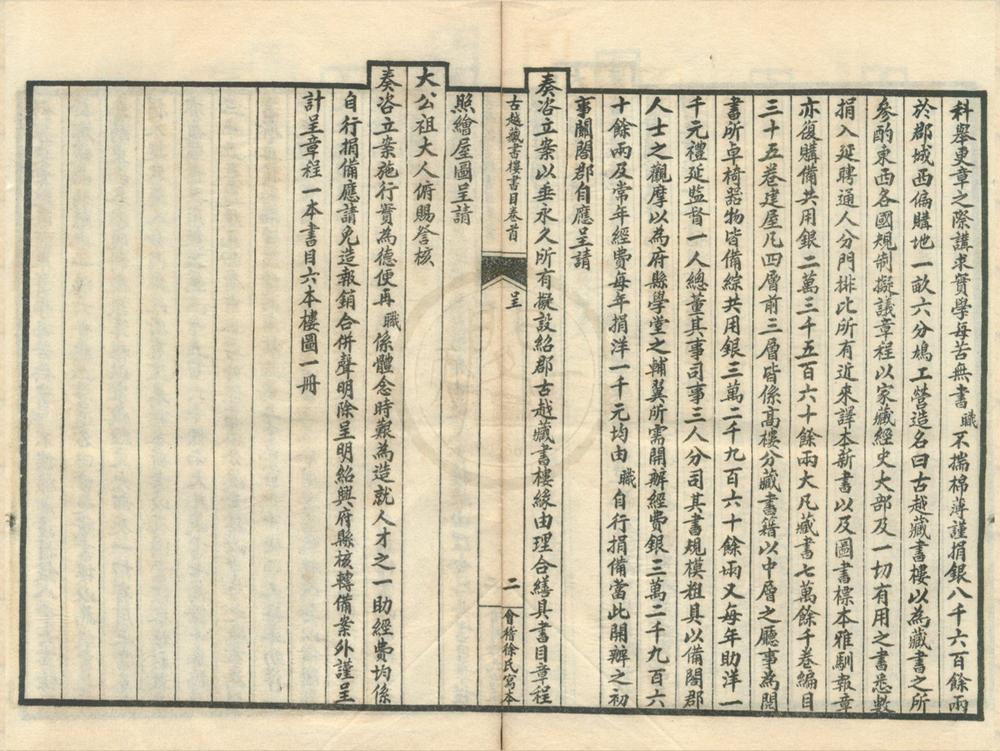 科舉更章之際講求實學每苦無書職不揣棉薄謹捐銀八千六百餘兩
於郡城西偏購地一畝六分鳩工營造名曰古越藏書樓以為藏書之所
參酌東西各國規制擬議章程以家藏經史大部及一切有用之書悉數
捐入延聘通人分門排比所有近來譯本新書以及圖書標本雅馴報章
亦復購備共用銀二萬三千五百六十餘兩大凡藏書七萬餘千卷編目
三十五卷建屋凡四層前三層皆係高樓分藏書籍以中層之廳事為閱
書所卓椅器物皆備綜共用銀三萬二千九百六十餘兩又每年助洋一
千元禮延監督一人總董其事司事三人分司其書規模粗具以備閤郡
人士之觀摩以為府縣學堂之輔翼所需開辦經費銀三萬二千九百六
十餘兩及常年經費每年捐洋一千元均由職自行捐備當此開辦之初
事關閤郡自應呈請
奏咨立案以垂永久所有擬設紹郡古越藏書樓緣由理合繕具書目章程
古越藏書樓書目卷首
呈
二
會稽徐氏寫本
照繪屋圖呈請
大公祖大人俯賜詧核
奏咨立案施行實為德便再職係體念時艱為造就人才之一助經費均係
自行捐備應請免造報銷合併聲明除呈明紹興府縣核轉備案外謹呈
計呈章程一本書目六本樓圖一冊